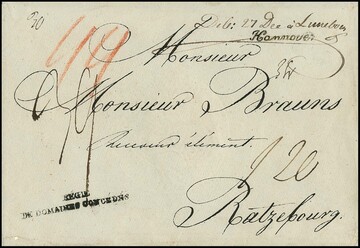 20
Deb: 27 Dec à Lunebourg
Hannover
Monsieur
Monsieur Brauns
Receveur élément.
20
Ratzebourg.
RÉGIE
DE DOMAINES CONCÉDÉS